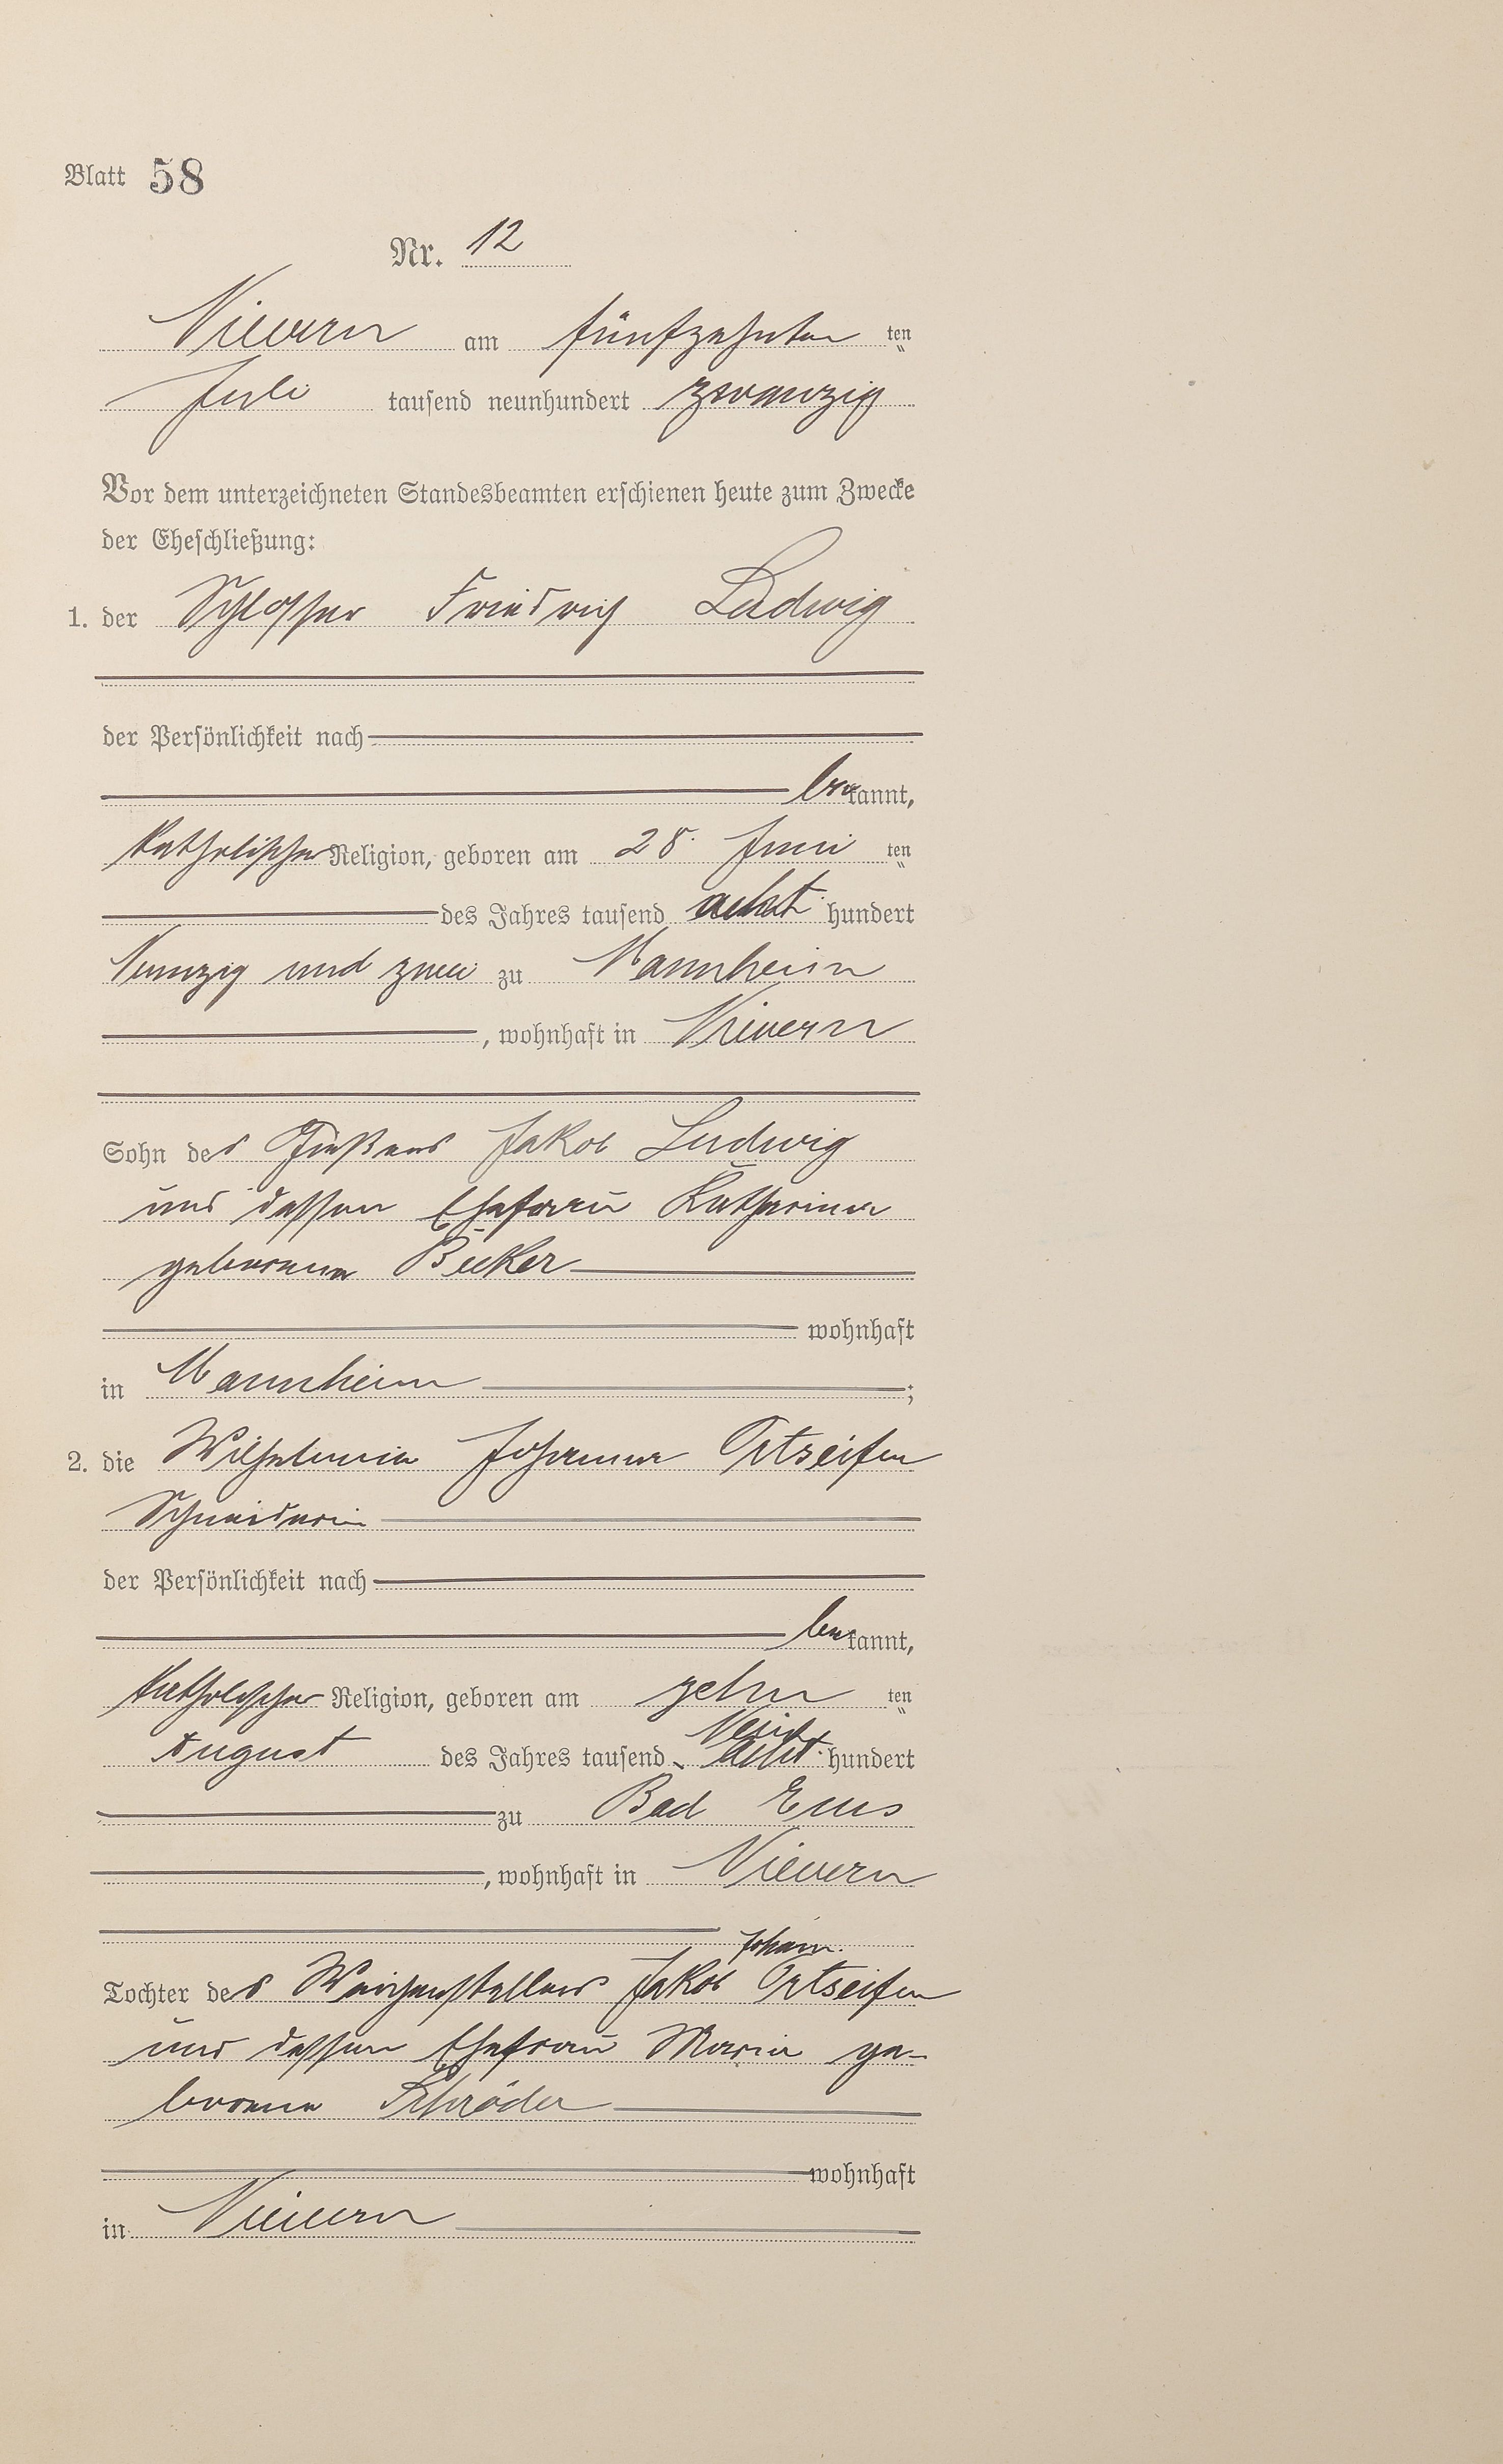 Blatt 58
Nr. 12
Nievern am fünfzehnten ten
Juli tausend neunhundert zwanzig
Vor dem unterzeichneten Standesbeamten erschienen heute zum Zwecke
der Eheschließung:
1. der Schlosser Friedrich Ludwig
der Persönlichkeit nach
bekannt,
katholischer Religion, geboren am 28. Juni ten
des Jahres tausend acht hundert
Neunzig und zwei zu Mannheim
, wohnhaft in Nievern
Sohn des Gießers Jakob Ludwig
und dessen Ehefrau Katharina
geborene Becker
wohnhaft
in Mannheim ;
2. die Wilhelmina Johanna Ortseifen
Schneiderin
der Persönlichkeit nach
bekannt,
katholischer Religion, geboren am zehn ten
Neun
August des Jahres tausend acht hundert
zu Bad Ems
, wohnhaft in Nievern
Johann
Tochter des Weichenstellers Jakob Ortseifen
und dessen Ehefrau Maria ge-
borene Schröder
wohnhaft
in Nievern